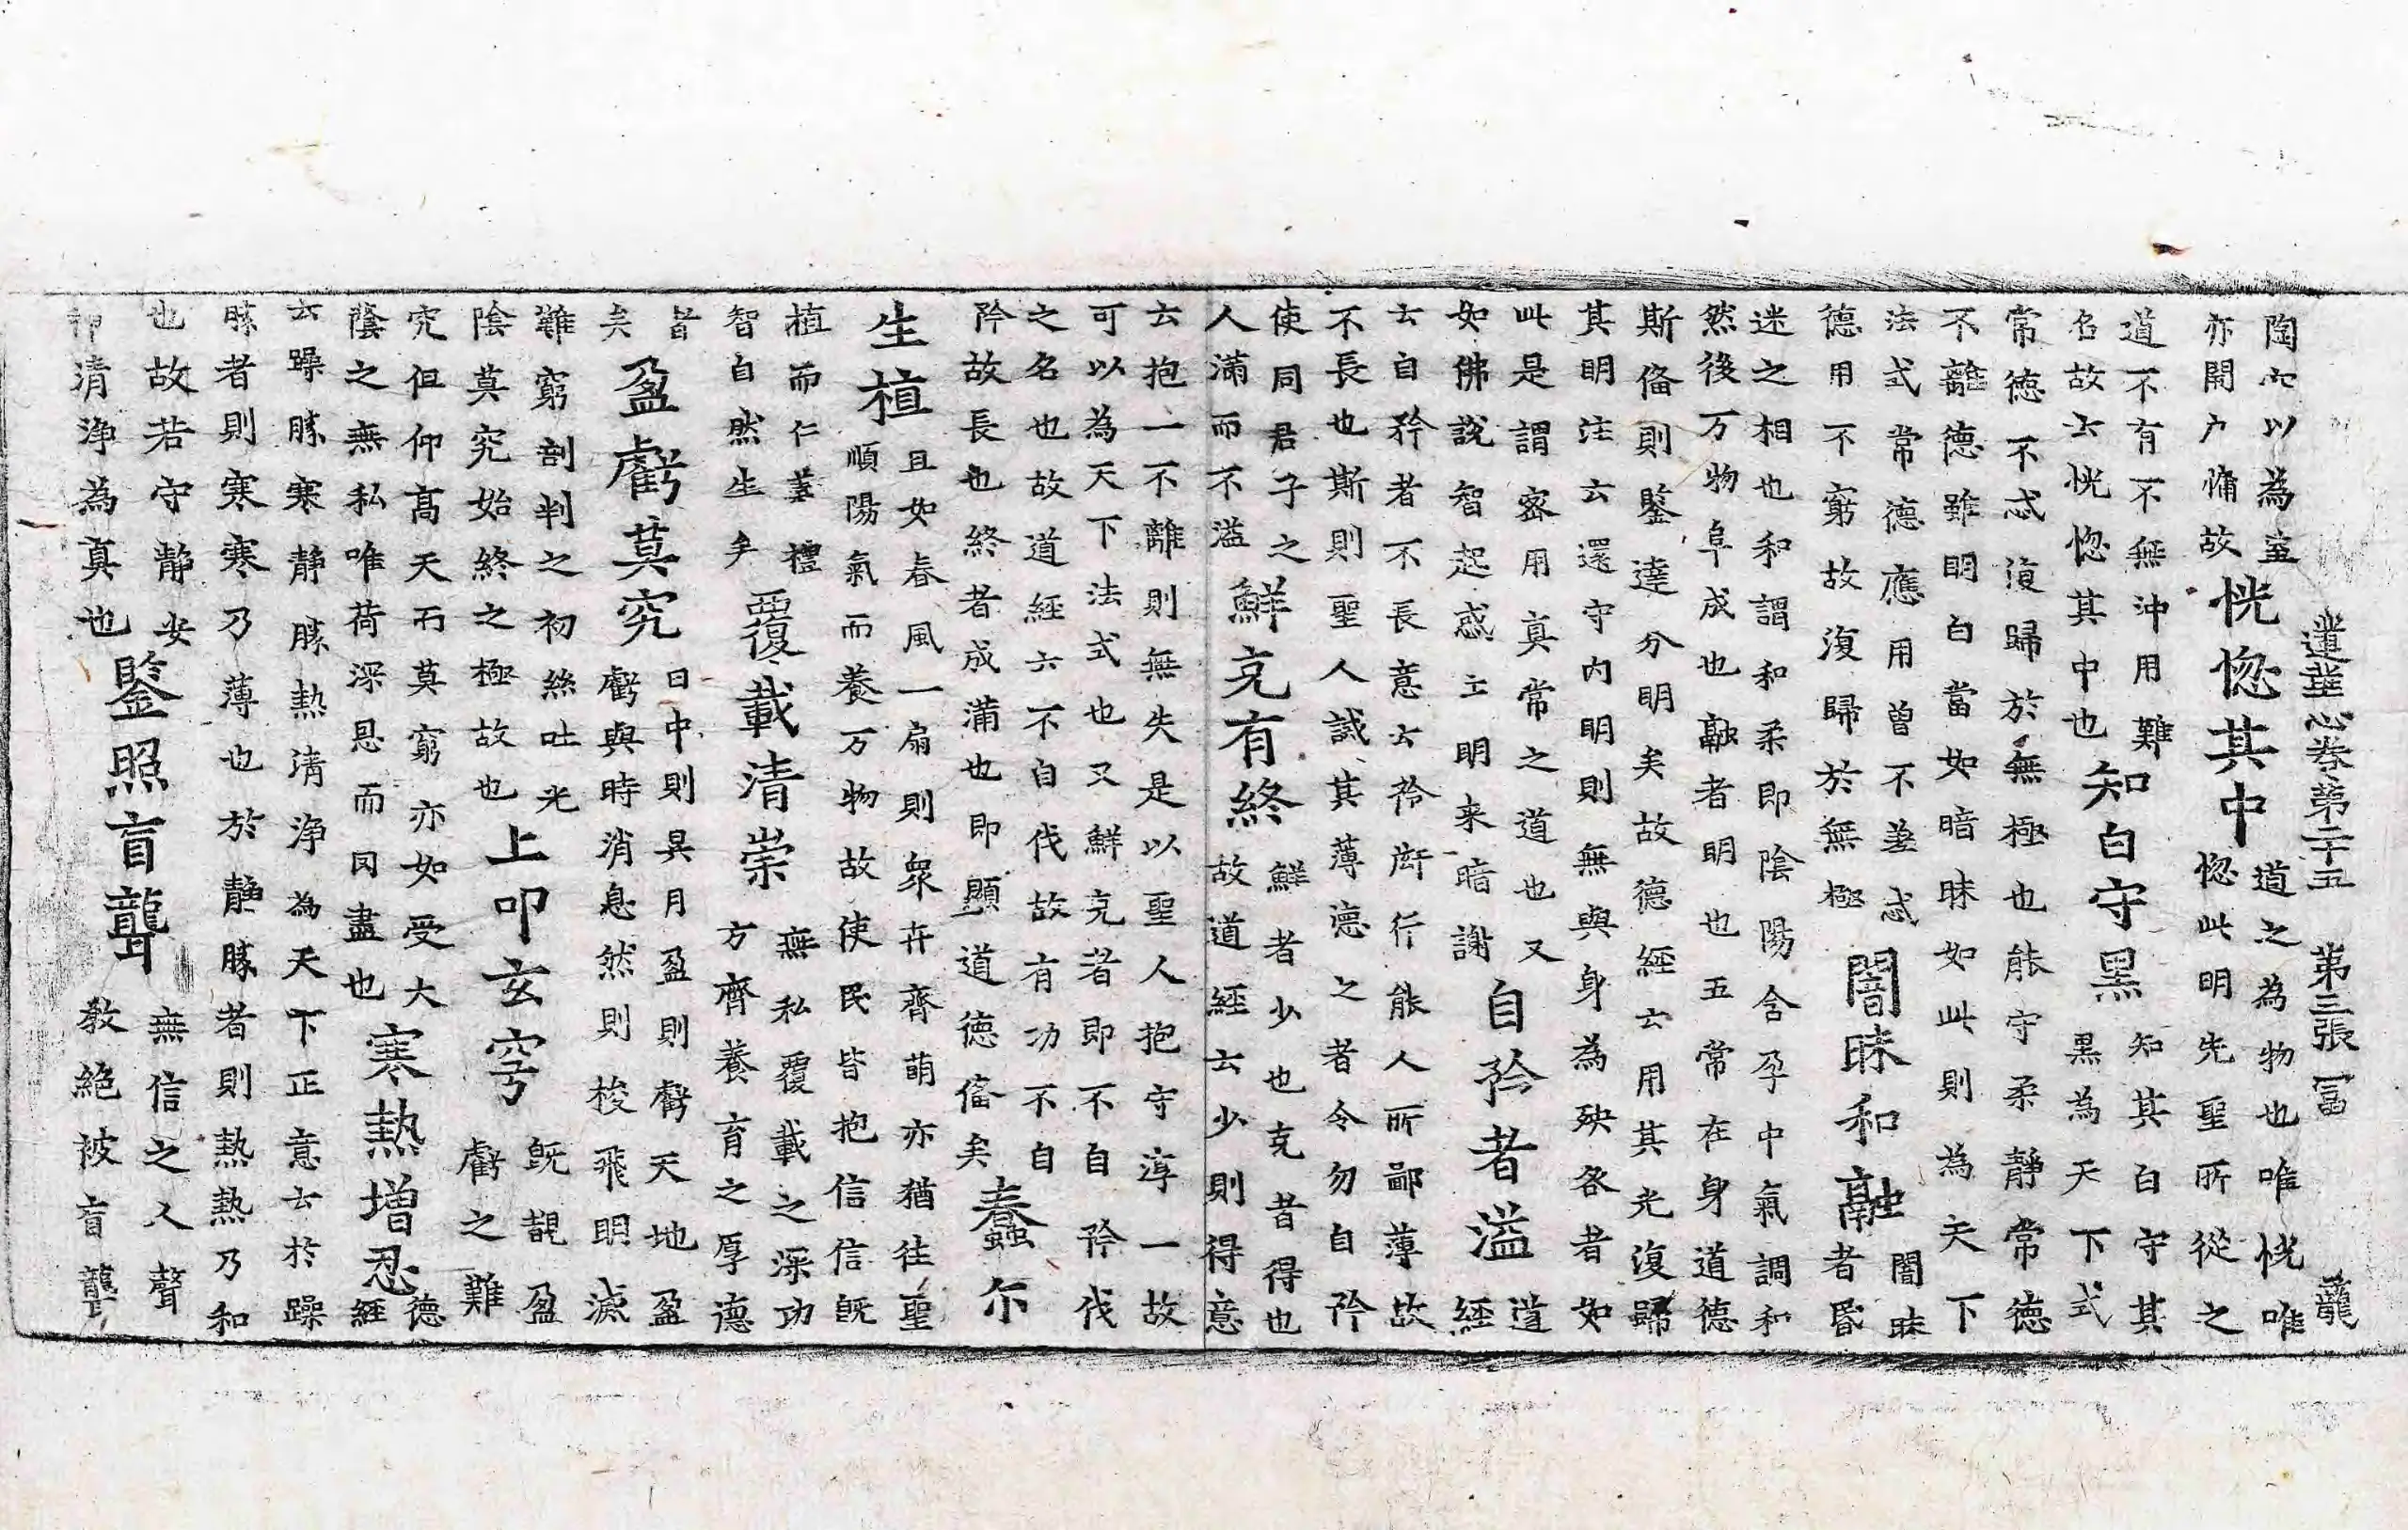 蓮華心卷第二十五 第三張 冨 龍
陶穴以為室
亦開户牖故
恍惚其中
道之為物也唯恍唯
惚此明先聖所從之
道不有不無沖用難
名故云恍惚其中也
知白守黑
知其白守其
黑為天下式
常德不忒復歸於無極也能守柔靜常德
不離德雖明白當如暗昧如此則為天下
法式常德應用曾不差忒
德用不窮故復歸於無極
闇昧和融
闇昧
者昏
迷之相也和謂和柔即陰陽含孕中氣調和
然後万物阜成也融者明也五常在身道德
斯俻則鑒達分明矣故德經云用其光復歸
其明注云還守内明則無與身為殃咎者如
此是謂密用真常之道也又
如佛說智起惑亡明来暗謝
自矜者溢
道
經
云自矜者不長意云矜衒行能人所鄙薄故
不長也斯則聖人誡其薄德之者令勿自矜
使同君子之
人滿而不溢
鮮克有終
鮮者少也克者得也
故道經云少則得意
云抱一不離則無失是以聖人抱守淳一故
可以為天下法式也又鮮克者即不自矜伐
之名也故道經云不自伐故有功不自
矜故長也終者成滿也即顯道德俻矣
蠢尓
生植
且如春風一扇則衆卉齊萌亦猶往聖
順陽氣而養万物故使民皆抱信信既
植而仁蓋禮
智自然生乎
覆載清崇
無私覆載之深功
方齊養育之厚德
者
矣
盈虧莫究
日中則昃月盈則虧天地盈
虧與時消息然則梭飛明滅
難窮剖判之初絲吐光
陰莫究始終之極故也
上叩玄穹
既覩盈
虧之難
究但仰高天而莫窮亦如受大
蔭之無私唯荷深恩而罔盡也
寒熱增忍
德
經
云躁勝寒靜勝熱清淨為天下正意云於躁
勝者則寒寒乃薄也於靜勝者則熱熱乃和
也故若守靜安
神清淨為真也
鑒照盲聾
無信之人聲
教絶被盲聾